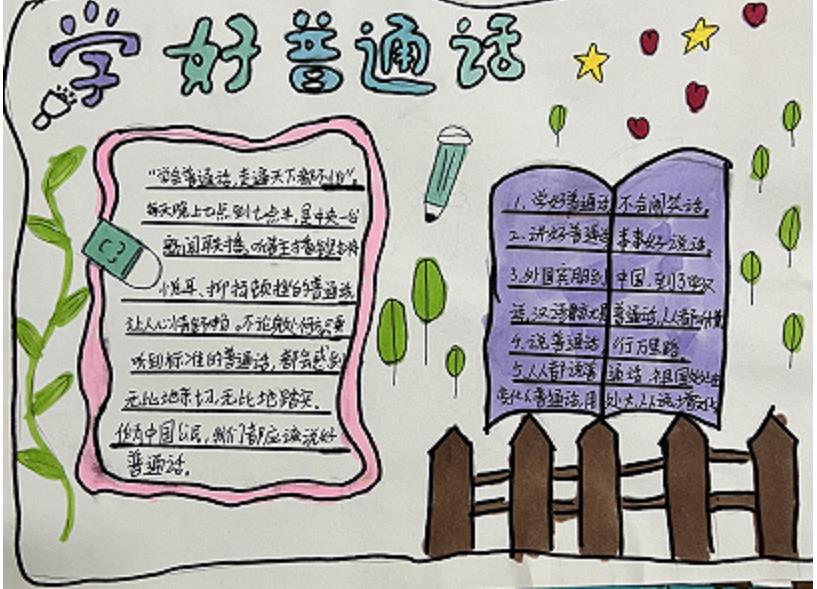 学好普通话
“学会普通话,走遍天下都不怕”。
每天晚上七点到七点半,是中央一台
新闻联播,听着主播
抑扬顿挫的普通话
让人心情舒畅。不论
听到标准的普通话,都会感到
无比地亲切,无比地踏实。
作为中国公民,我们都应该说好
普通话。
1、学好普通话 不会闹笑话。
2、讲好普通话 事事好说话。
3、外国宾朋到中国,
话,汉语普通话,人人都
4、说普通话 行万里路。
5、人人都说普通话 祖国
普通话,